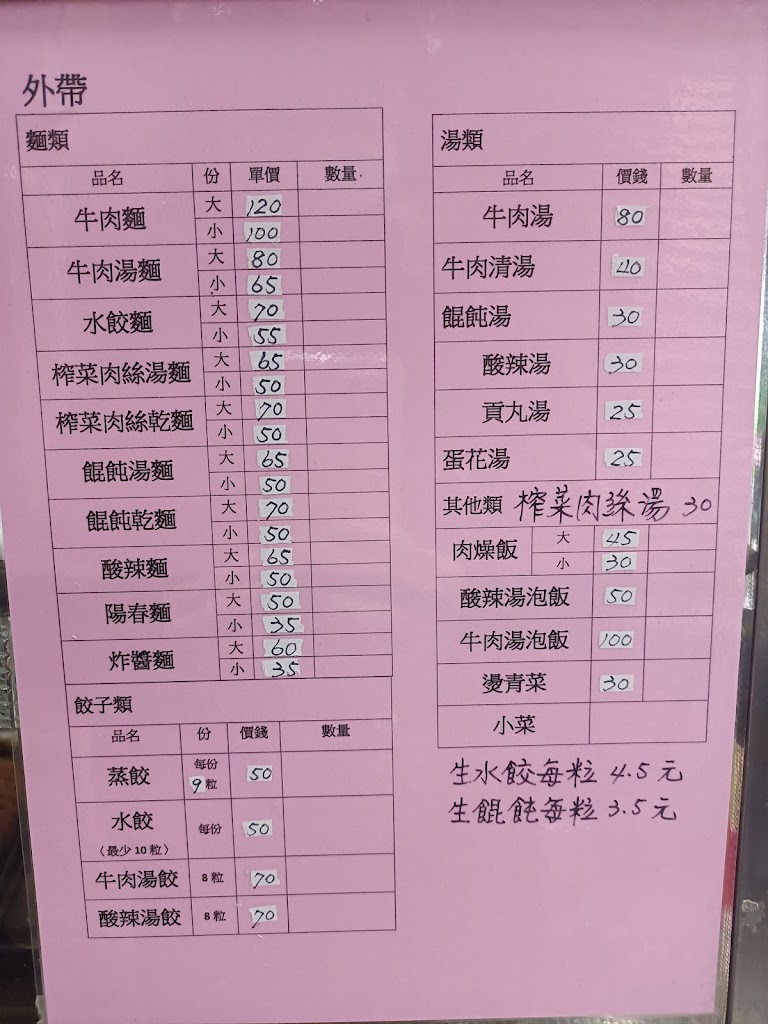 外帶
麵類
品名 份 單價 數量
牛肉麵 大 120
小 100
牛肉湯麵 大 80
小 65
水餃麵 大 70
小 55
榨菜肉絲湯麵 大 65
小 50
榨菜肉絲乾麵 大 70
小 50
餛飩湯麵 大 65
小 50
餛飩乾麵 大 70
小 50
酸辣麵 大 65
小 50
陽春麵 大 50
小 35
炸醬麵 大 60
小 35
餃子類
品名 份 價錢 數量
蒸餃 每份 9粒 50
水餃 (最少10粒) 每份 50
牛肉湯餃 8粒 70
酸辣湯餃 8粒 70
湯類
品名 價錢 數量
牛肉湯 80
牛肉清湯 40
餛飩湯 30
酸辣湯 30
貢丸湯 25
蛋花湯 25
其他類 榨菜肉絲湯 30
肉燥飯 大 45
小 30
酸辣湯泡飯 50
牛肉湯泡飯 100
燙青菜 30
小菜
生水餃每粒 4.5元
生餛飩每粒 3.5元